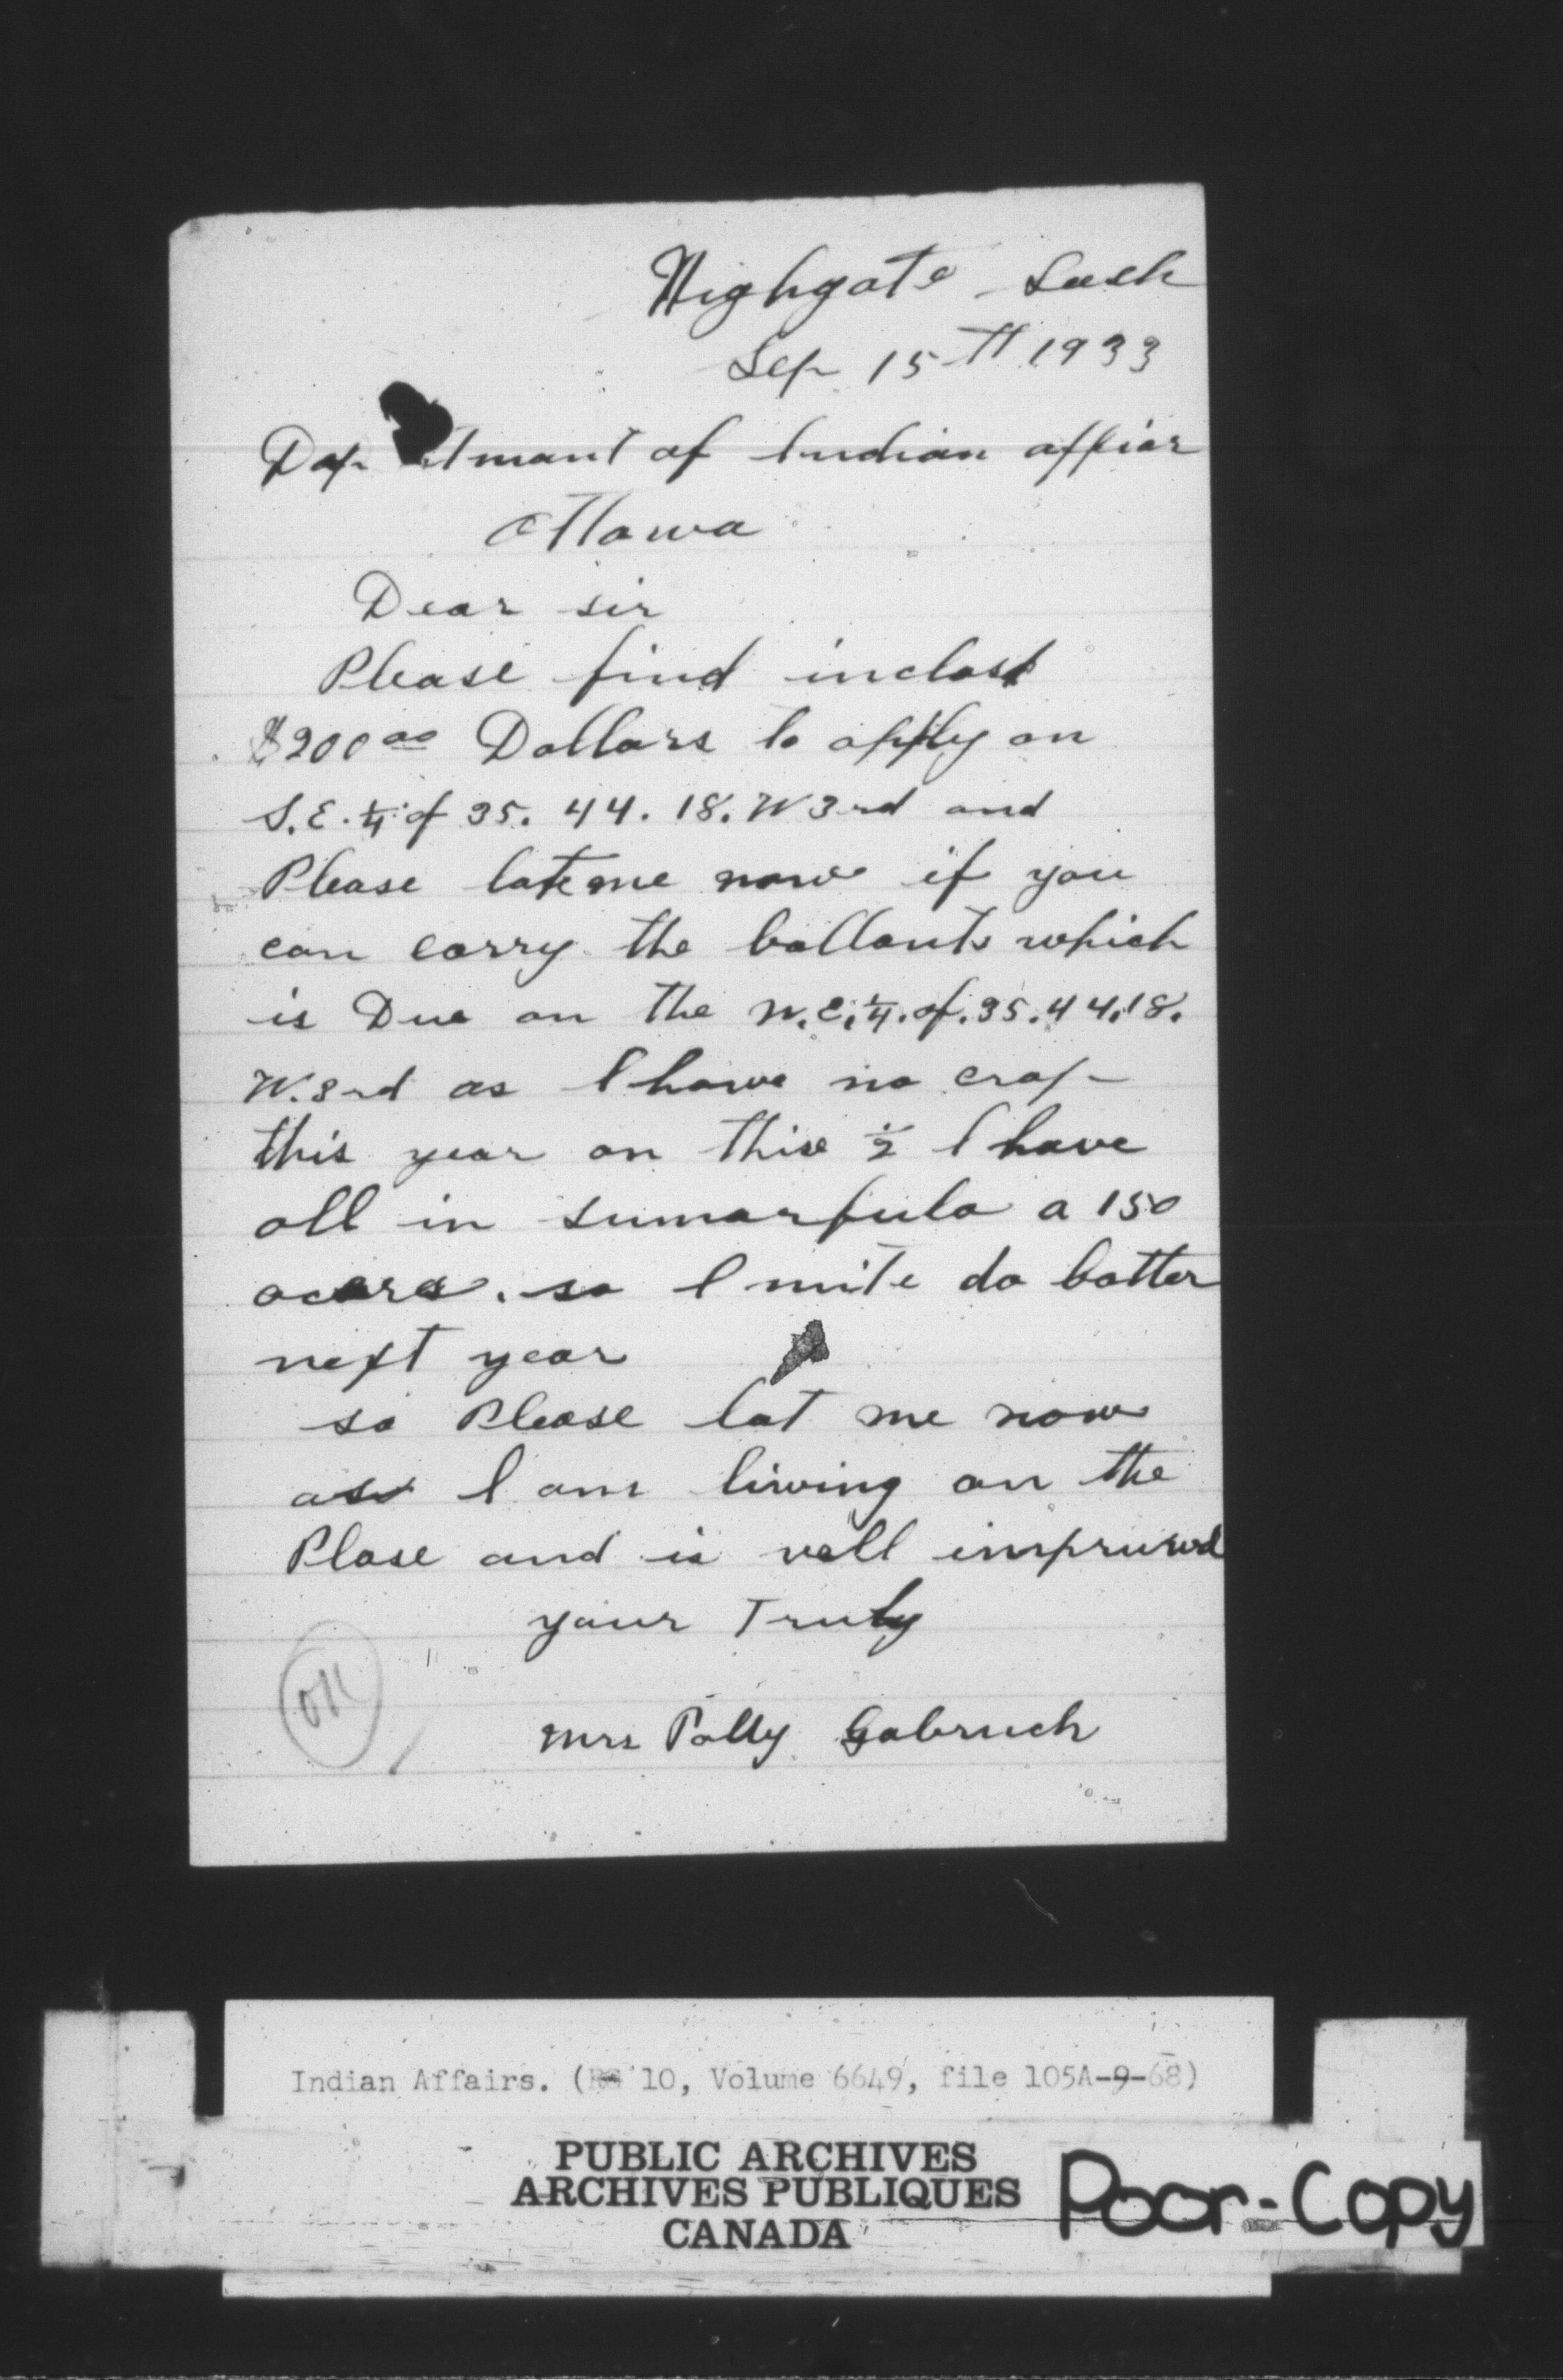 Highgate Sask
Sep 15TH 1933
Dapartmant of Indian affiar
Ottawa
Dear sir
Please find inclost
$200 00 Dollars to apply on
S.E. 1/4 of 35. 44. 18. W 3rd and
Please late me now if you
can carry the ballants which
is Due on the N.E. 1/4. of. 35. 44. 18.
W. 3rd as I have no crop
this year on this 1/2 I have
all in sumarfula a 150
acers. so I mite do batter
next year
so Please lat me now
as I am living on the
Plase and is vell impruwd
your Truly
Mrs Polly Gabruch
Indian Affairs. (RG 10, Volume 6649, file 105A-9-68)
PUBLIC ARCHIVES
ARCHIVES PUBLIQUES
CANADA
Poor-Copy